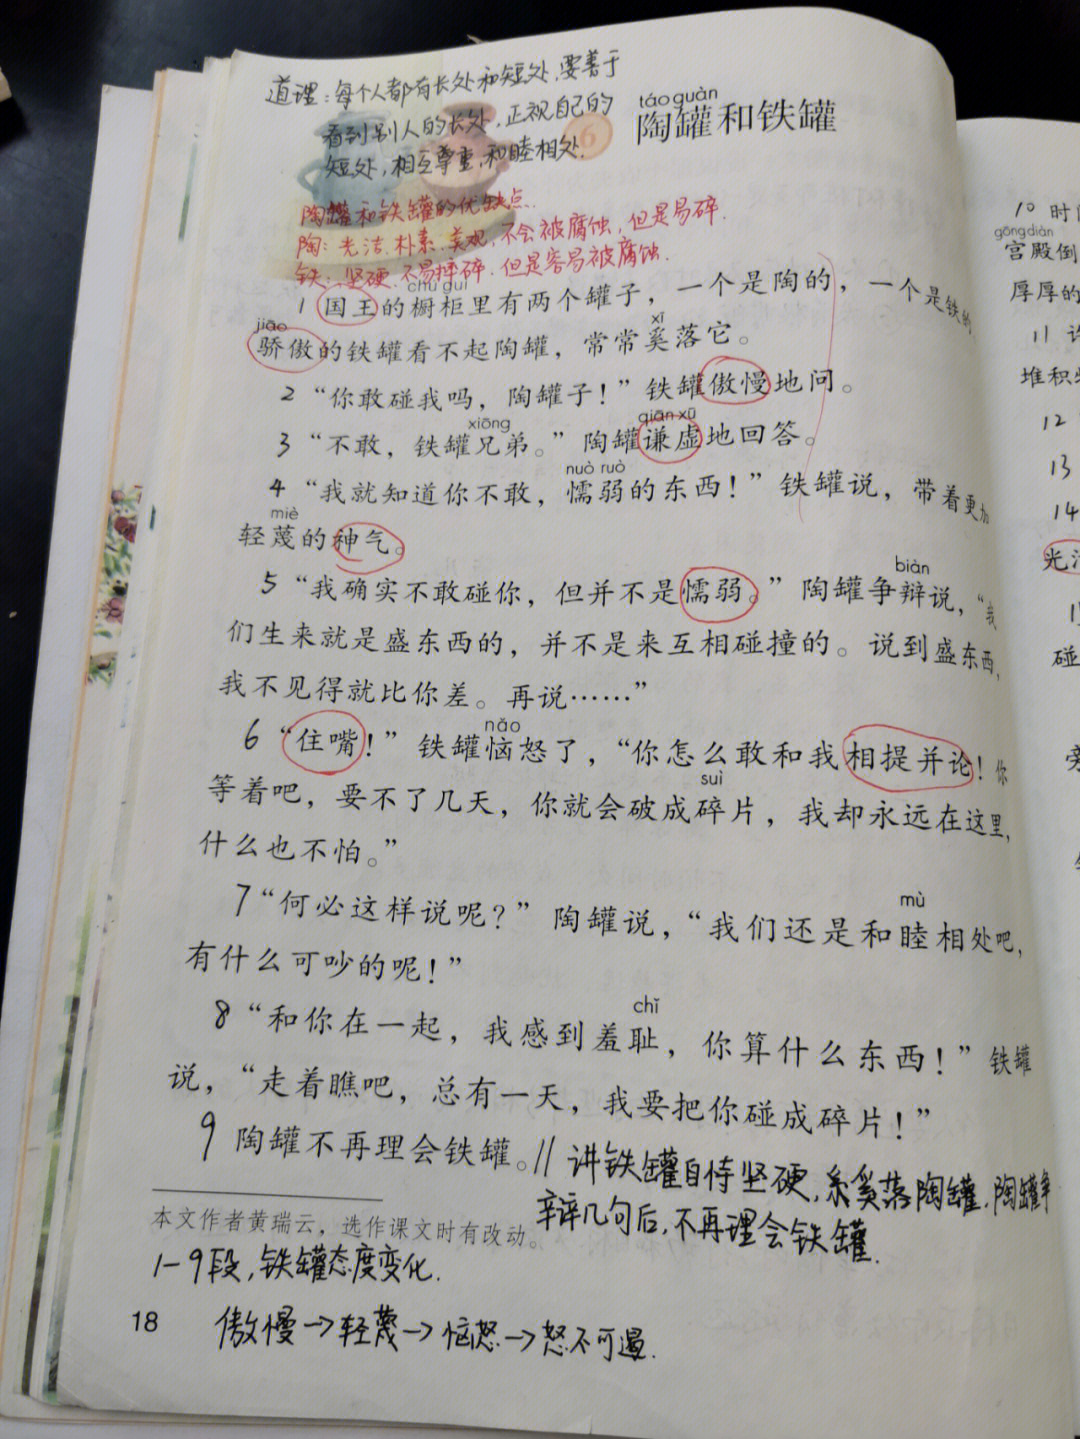 道理:每个人都有长处和短处,要善于
看到别人的长处,正视自己的
短处,相互尊重,和睦相处.
táo guàn
6 陶罐和铁罐
陶罐和铁罐的优缺点.
陶:光洁.朴素.美观,不会被腐蚀,但是易碎.
铁:坚硬.不易摔碎.但是容易被腐蚀.
chú guì
1 国王的橱柜里有两个罐子,一个是陶的,一个是铁的。
jiāo xī
骄傲的铁罐看不起陶罐,常常奚落它。
2 “你敢碰我吗,陶罐子!”铁罐傲慢地问。
xiōng qiān xū
3 “不敢,铁罐兄弟。”陶罐谦虚地回答。
nuò ruò
4 “我就知道你不敢,懦弱的东西!”铁罐说,带着更加
miè
轻蔑的神气。
biàn
5 “我确实不敢碰你,但并不是懦弱。”陶罐争辩说,“我
们生来就是盛东西的,并不是来互相碰撞的。说到盛东西,
我不见得就比你差。再说……”
nǎo
6 “住嘴!”铁罐恼怒了,“你怎么敢和我相提并论!你
suì
等着吧,要不了几天,你就会破成碎片,我却永远在这里,
什么也不怕。”
mù
7 “何必这样说呢?”陶罐说,“我们还是和睦相处吧,
有什么可吵的呢!”
chǐ
8 “和你在一起,我感到羞耻,你算什么东西!”铁罐
说,“走着瞧吧,总有一天,我要把你碰成碎片!”
9 陶罐不再理会铁罐。// 讲铁罐自恃坚硬,奚落陶罐,陶罐争
辩几句后,不再理会铁罐.
本文作者黄瑞云,选作课文时有改动。
1-9段,铁罐态度变化.
18 傲慢→轻蔑→恼怒→怒不可遏.
10 时
gōng diàn
宫殿倒
厚厚的
11
堆积
12
13
14
光
碰